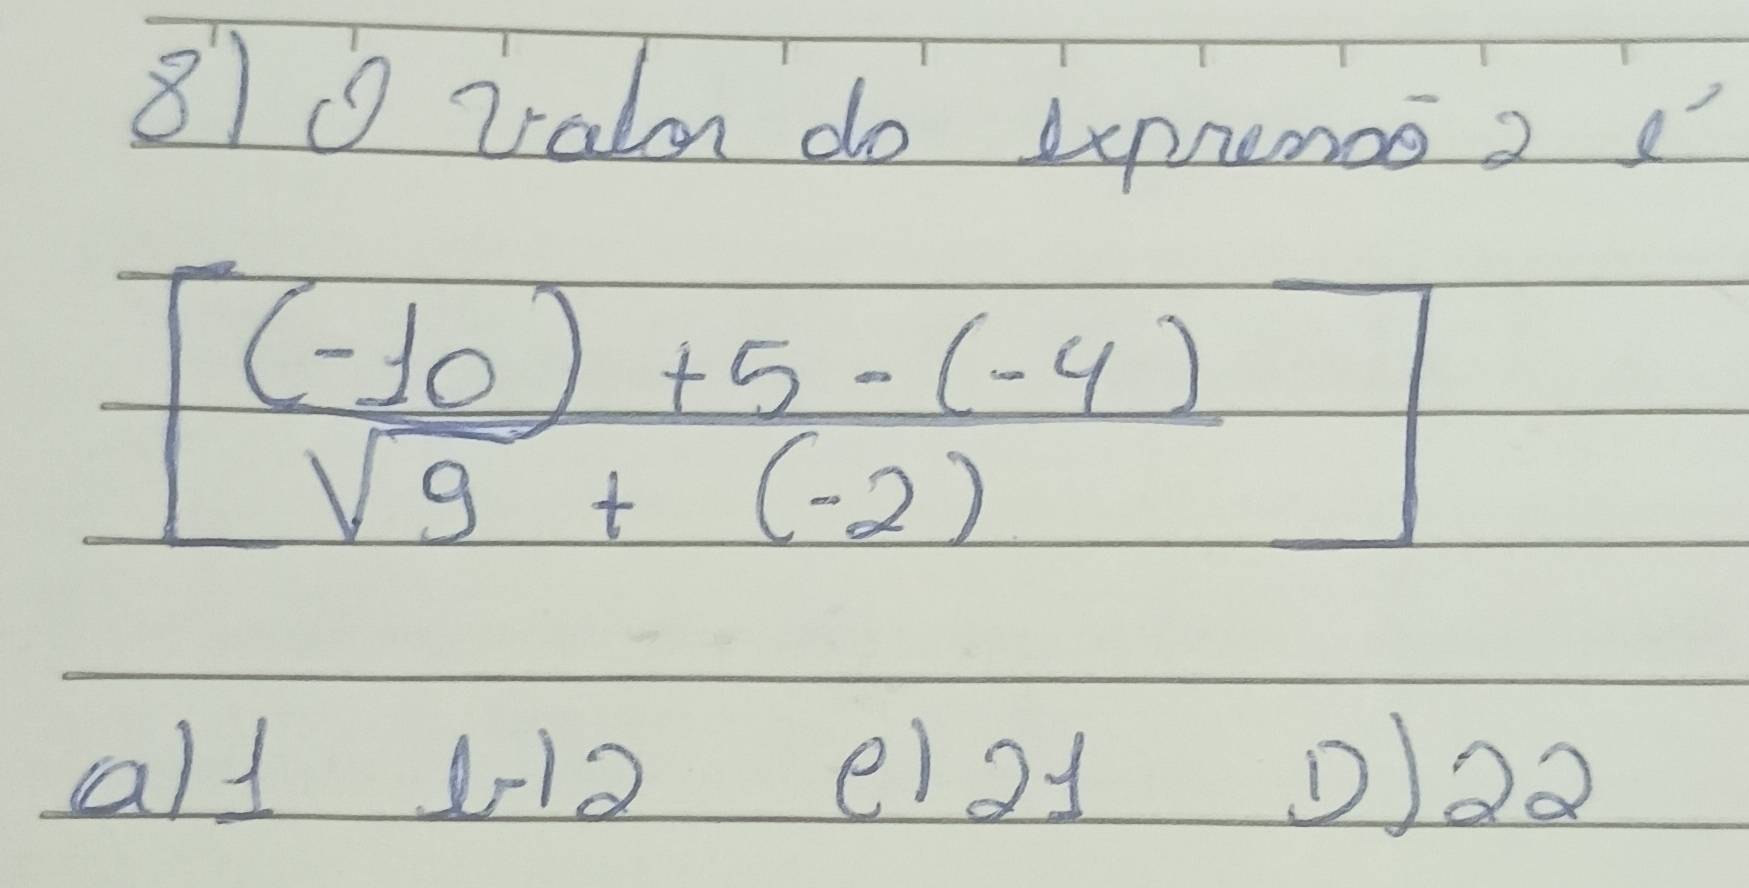 8) O valor do expressão 2 é
[(-10) + 5 - (-4)
√9 + (-2)]
a) 1 b) 2 c) 21 D) 22